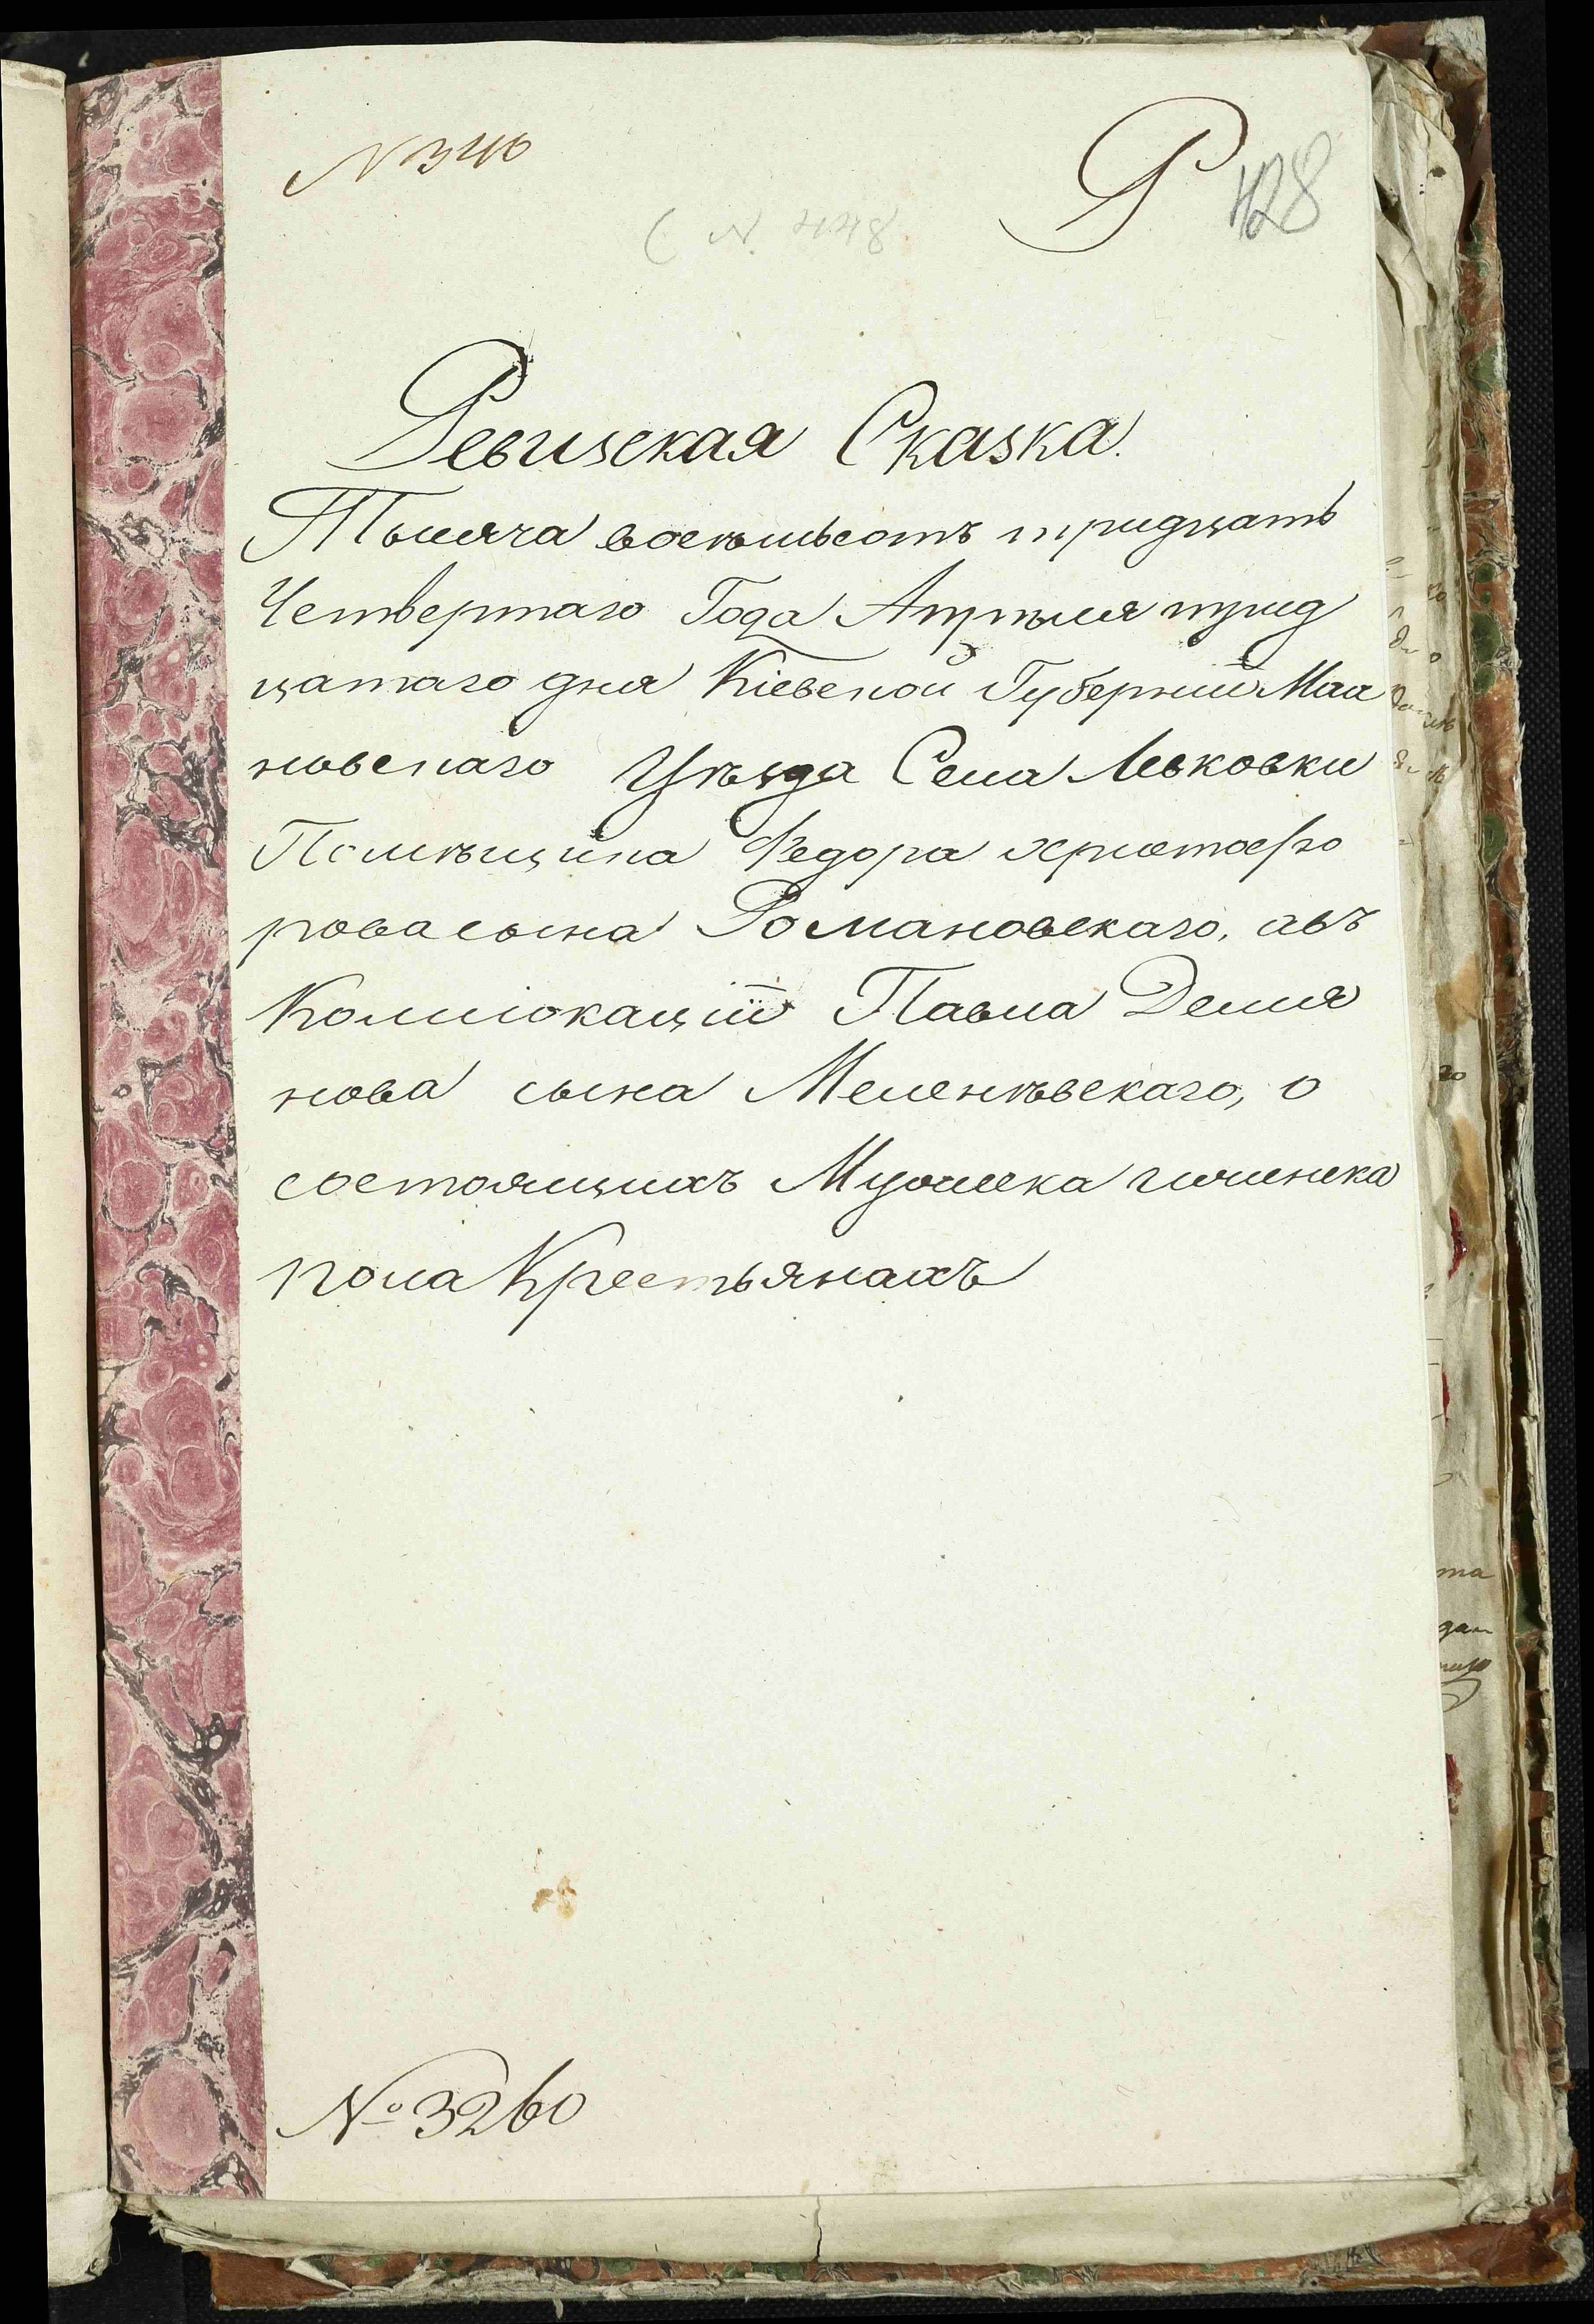 N 340
Р 428
( N. 448
Ревизская Сказка.
Тысяча восѣмьсотъ тридцать
Четвертаго Года Апрѣля трид
цатаго дня Кіевской Губерніи Мах
новскаго Уѣзда Села Левковки
Помѣщика Федора христофо
рова сына Романовскаго, авъ
Коллокаціи Павла Демя
нова сына Меленѣвскаго, о
состоящихъ Мужеска иженска
пола Крестьянахъ
№ 3260